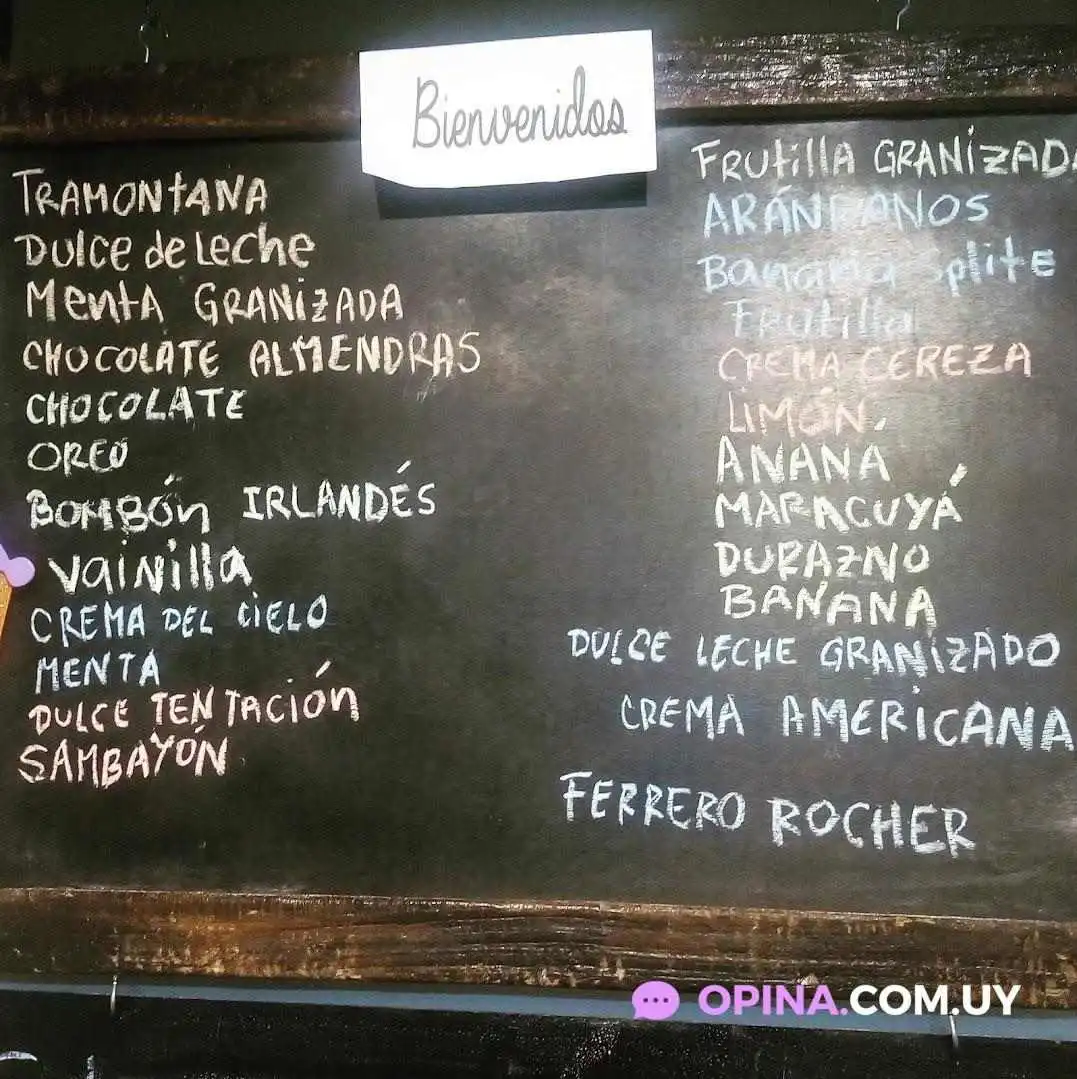 Bienvenidos
TRAMONTANA
Dulce de Leche
Menta GRANIZADA
CHOCOLATE ALMENDRAS
CHOCOLATE
OREO
BOMBÓN IRLANDÉS
Vainilla
CREMA DEL CIELO
MENTA
DULCE TENTACIÓN
SAMBAYÓN
FRUtillA GRANIZADA
ARÁNDANOS
Banana splite
Frutilla
CREMA CEREZA
LIMÓN
ANANÁ
MARACUYÁ
DURAZNO
BANANA
DULCE LECHE GRANIZADO
CREMA AMERICANA
FERRERO ROCHER
OPINA.COM.UY